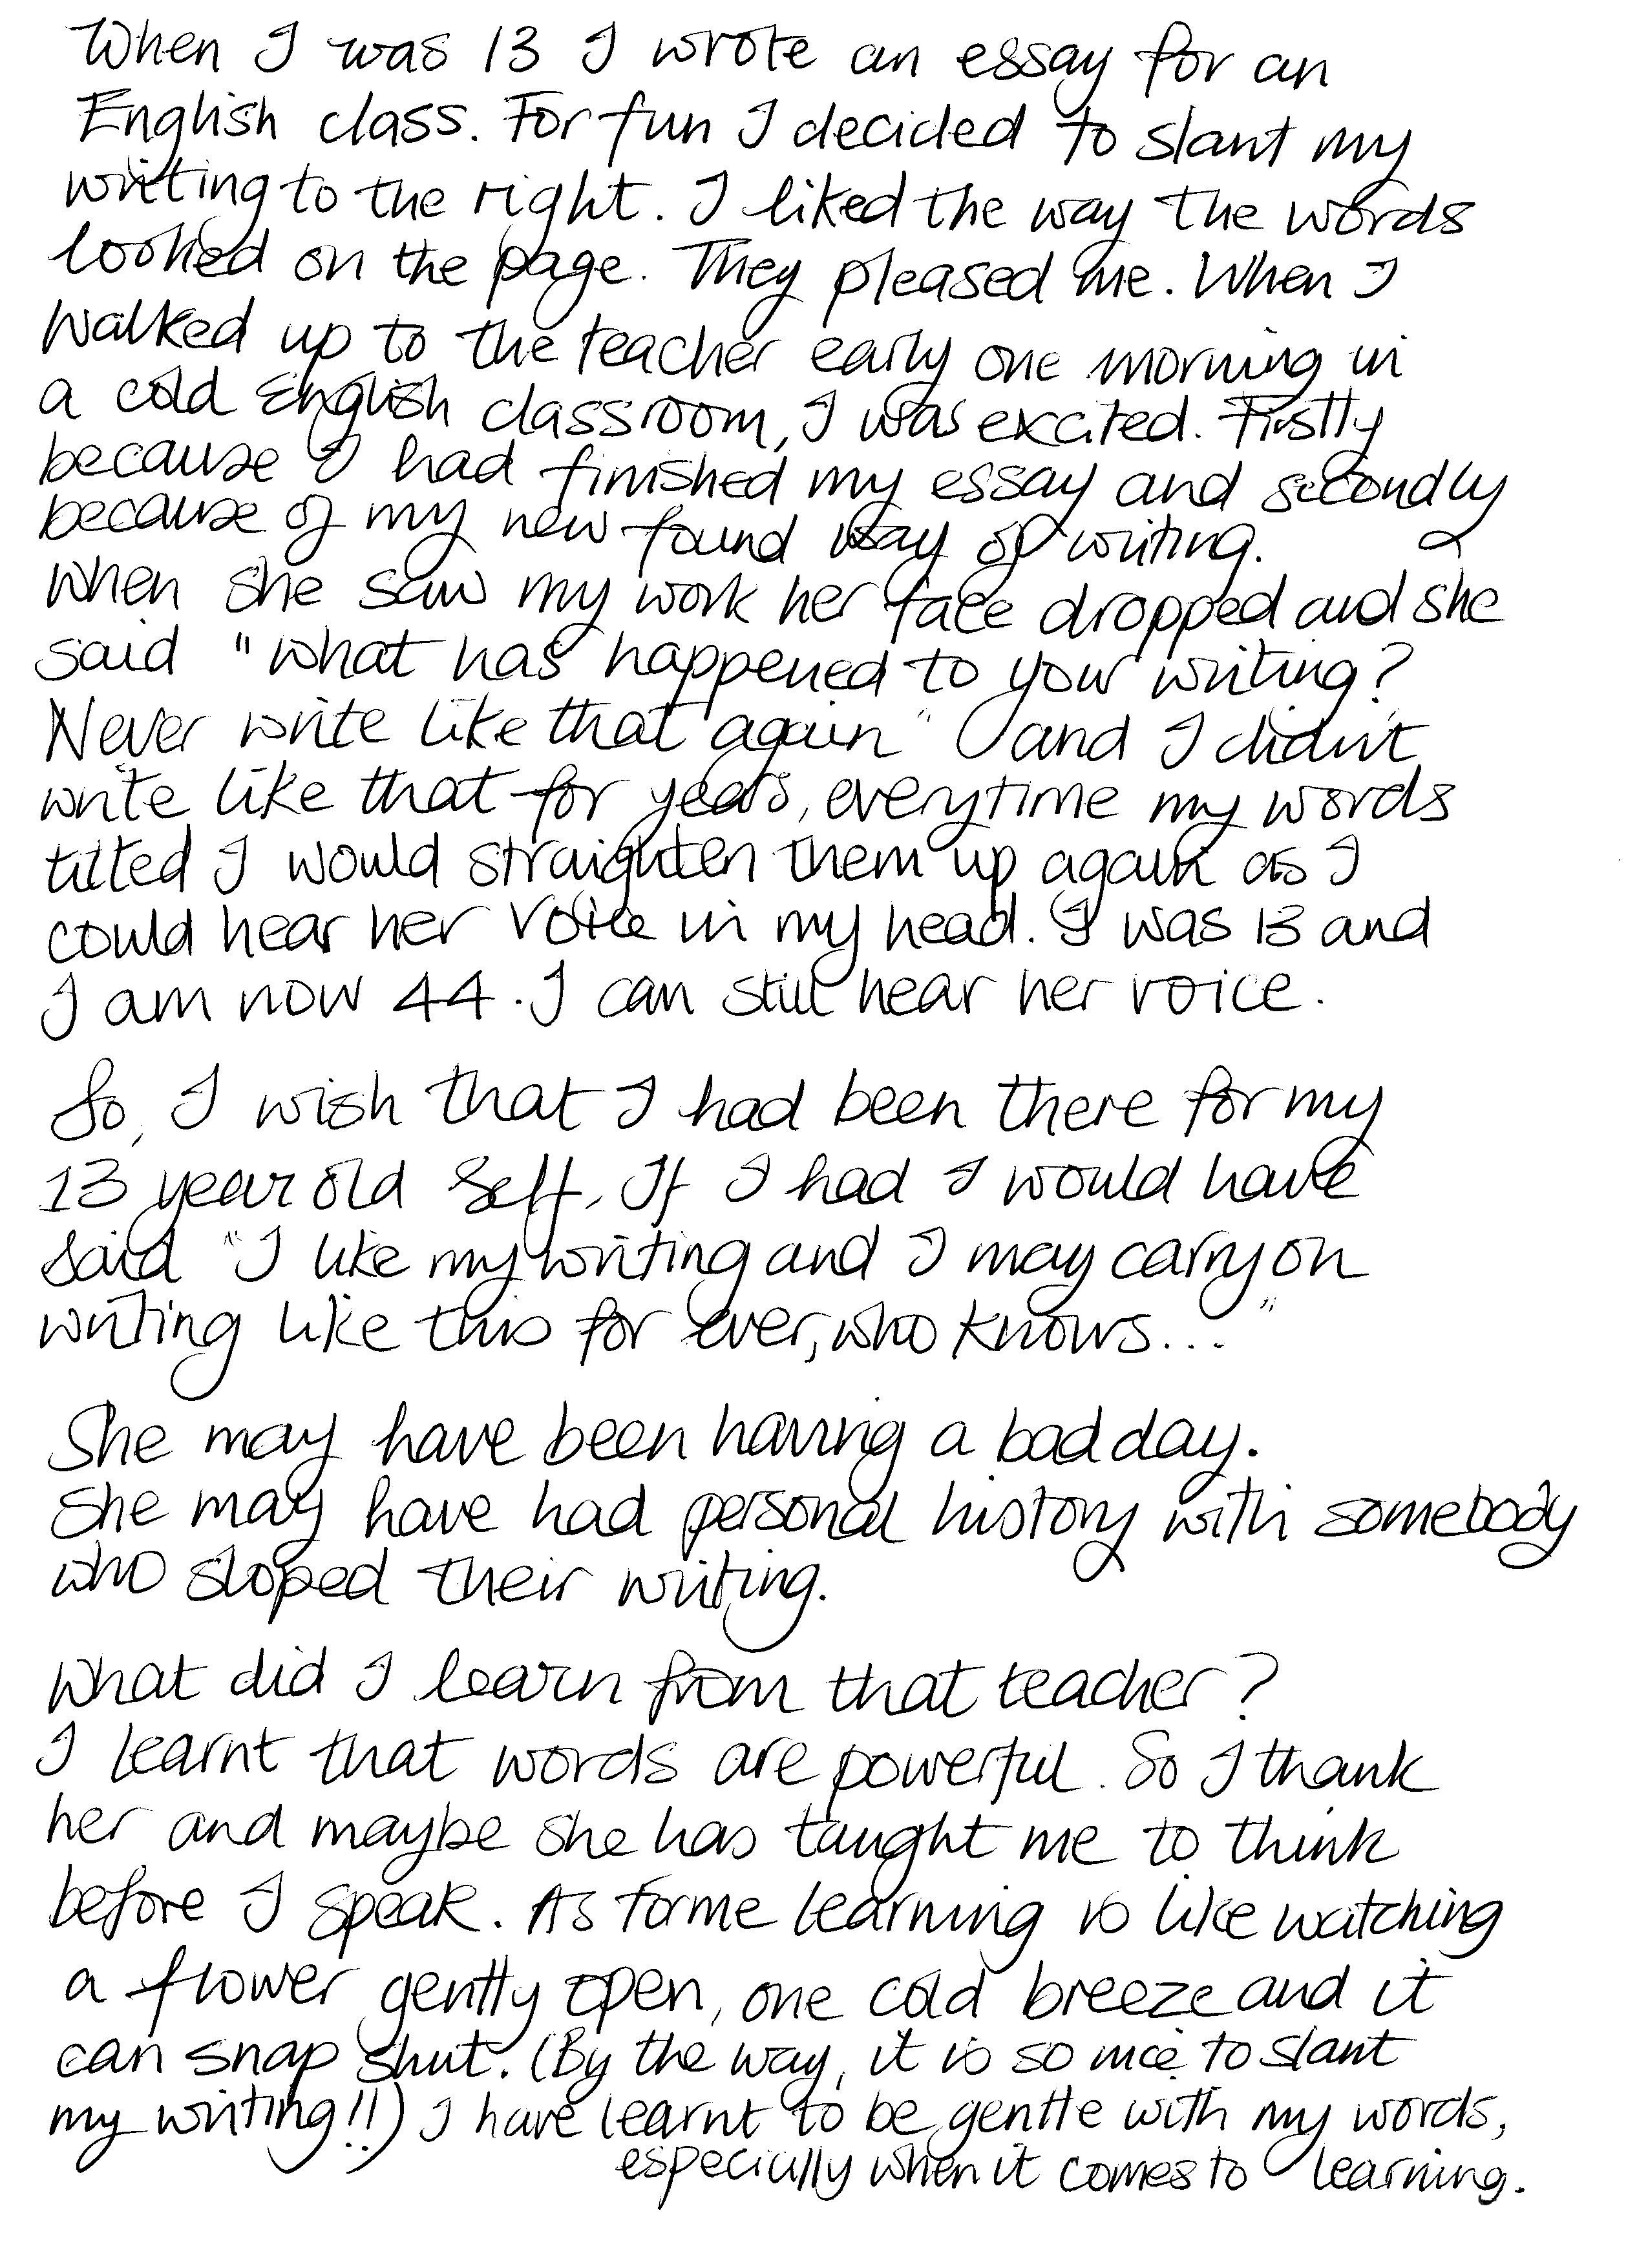 When I was 13 I wrote an essay for an
English class. For fun I decided to slant my
writing to the right. I liked the way the words
looked on the page. They pleased me. When I
walked up to the teacher early one morning in
a cold English classroom, I was excited. Firstly
because I had finished my essay and secondly
because of my new found way of writing.
When she saw my work her face dropped and she
said "what has happened to your writing?
Never write like that again" and I didn't
write like that for years, everytime my words
tilted I would straighten them up again as I
could hear her voice in my head. I was 13 and
I am now 44. I can still hear her voice.
So, I wish that I had been there for my
13 year old self. If I had I would have
said "I like my writing and I may carry on
writing like this for ever, who knows..."
She may have been having a bad day.
She may have had personal history with somebody
who sloped their writing.
What did I learn from that teacher?
I learnt that words are powerful. So I thank
her and maybe she has taught me to think
before I speak. As for me learning is like watching
a flower gently open, one cold breeze and it
can snap shut. (By the way, it is so nice to slant
my writing!!) I have learnt to be gentle with my words,
especially when it comes to learning.